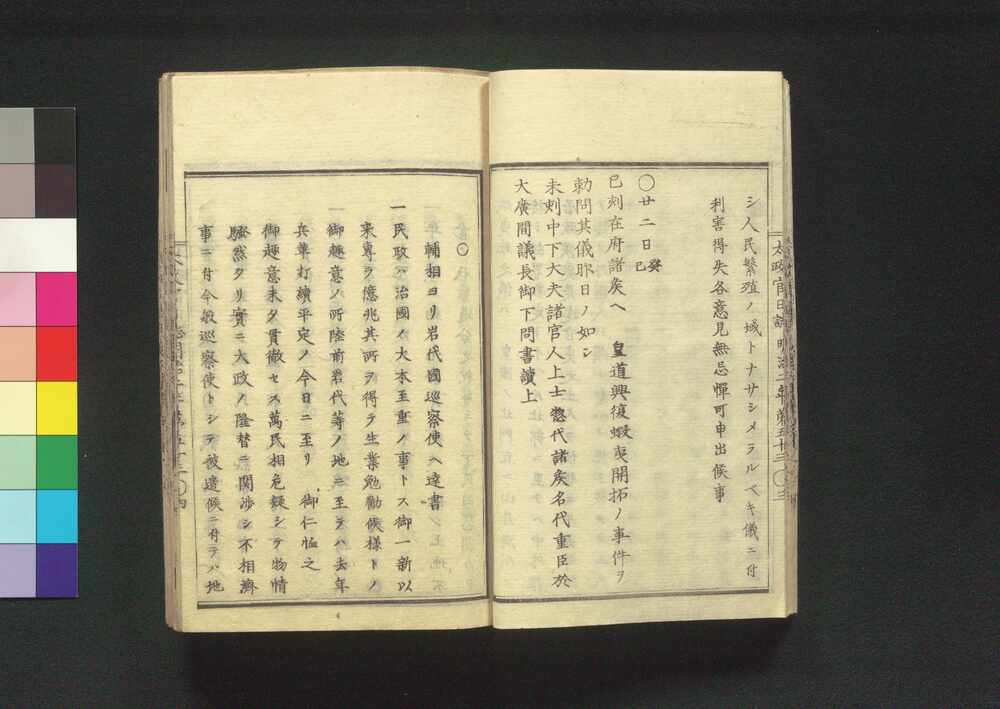 シ人民繁殖ノ域トナサシメラルベキ儀ニ付
利害得失各意見無忌憚可申出候事
〇廿二日癸巳
巳刻在府諸矦ヘ 皇道興復蝦夷開拓ノ事件ヲ
勅問其儀昨日ノ如シ
未刻中下大夫諸官人上士惣代諸矦名代重臣於
大廣間議長御下問書讀上
太政官日誌明治二年第五十三 〇三
〇
輔相ヨリ岩代國巡察使ヘ達書
一民政ハ治國ノ大本至重ノ事トス御一新以
來專ラ億兆其所ヲ得テ生業勉勵候様トノ
御趣意ノ所陸前岩代等ノ地ニ至テハ去年
兵革打續平定ノ今日ニ至リ 御仁恤之
御趣意未タ貫徹セス萬民相危疑シテ物情
騒然タリ實ニ大政ノ隆替ニ関渉シ不相濟
事ニ付今般巡察使トシテ被遣候ニ付テハ地